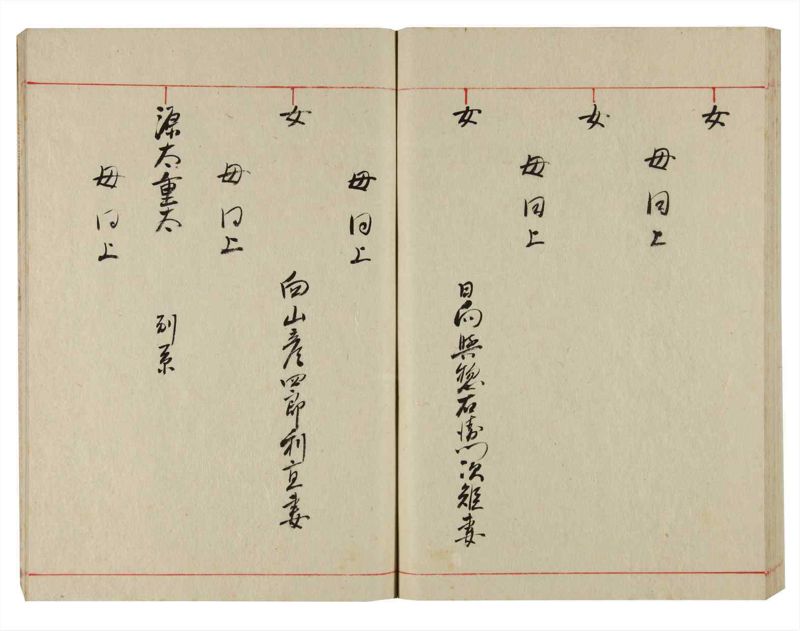 女
母同上
女
母同上
女
日向與惣右衛門次妻
母同上
女
向山彦四郎利妻
母同上
源太重太
別系
母同上